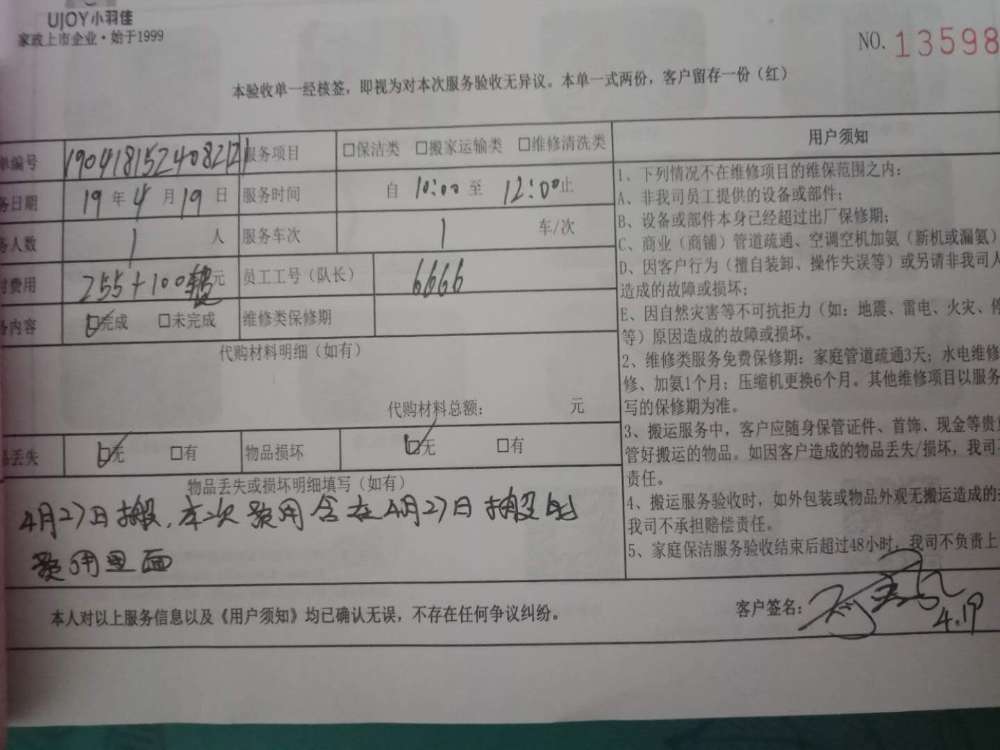 UJOY小羽佳
家政上市企业·始于1999
NO. 13598
本验收单一经核签，即视为对本次服务验收无异议。本单一式两份，客户留存一份（红）
单编号 190418152408212 服务项目 □保洁类 □搬家运输类 □维修清洗类
务日期 19 年 4 月 19 日 服务时间 自 10:00 至 12:00 止
务人数 1 人 服务车次 1 车/次
费用 255+100 元 员工工号（队长） 6666
务内容 ☑完成 □未完成 维修类保修期
代购材料明细（如有）
代购材料总额： 元
品丢失 ☑无 □有 物品损坏 ☑无 □有
物品丢失或损坏明细填写（如有）
4月27日搬，本次费用含在4月27日搬的
费用里面
用户须知
1、下列情况不在维修项目的维保范围之内：
A、非我司员工提供的设备或部件；
B、设备或部件本身已经超过出厂保修期；
C、商业（商铺）管道疏通、空调空机加氨（新机或漏氨）
D、因客户行为（擅自装卸、操作失误等）或另请非我司人
造成的故障或损坏；
E、因自然灾害等不可抗拒力（如：地震、雷电、火灾、停
等）原因造成的故障或损坏。
2、维修类服务免费保修期：家庭管道疏通3天；水电维修
修、加氨1个月；压缩机更换6个月。其他维修项目以服务
写的保修期为准。
3、搬运服务中，客户应随身保管证件、首饰、现金等贵
管好搬运的物品。如因客户造成的物品丢失/损坏，我司
责任。
4、搬运服务验收时，如外包装或物品外观无搬运造成的
我司不承担赔偿责任。
5、家庭保洁服务验收结束后超过48小时，我司不负责上
本人对以上服务信息以及《用户须知》均已确认无误，不存在任何争议纠纷。
客户签名：
4.19